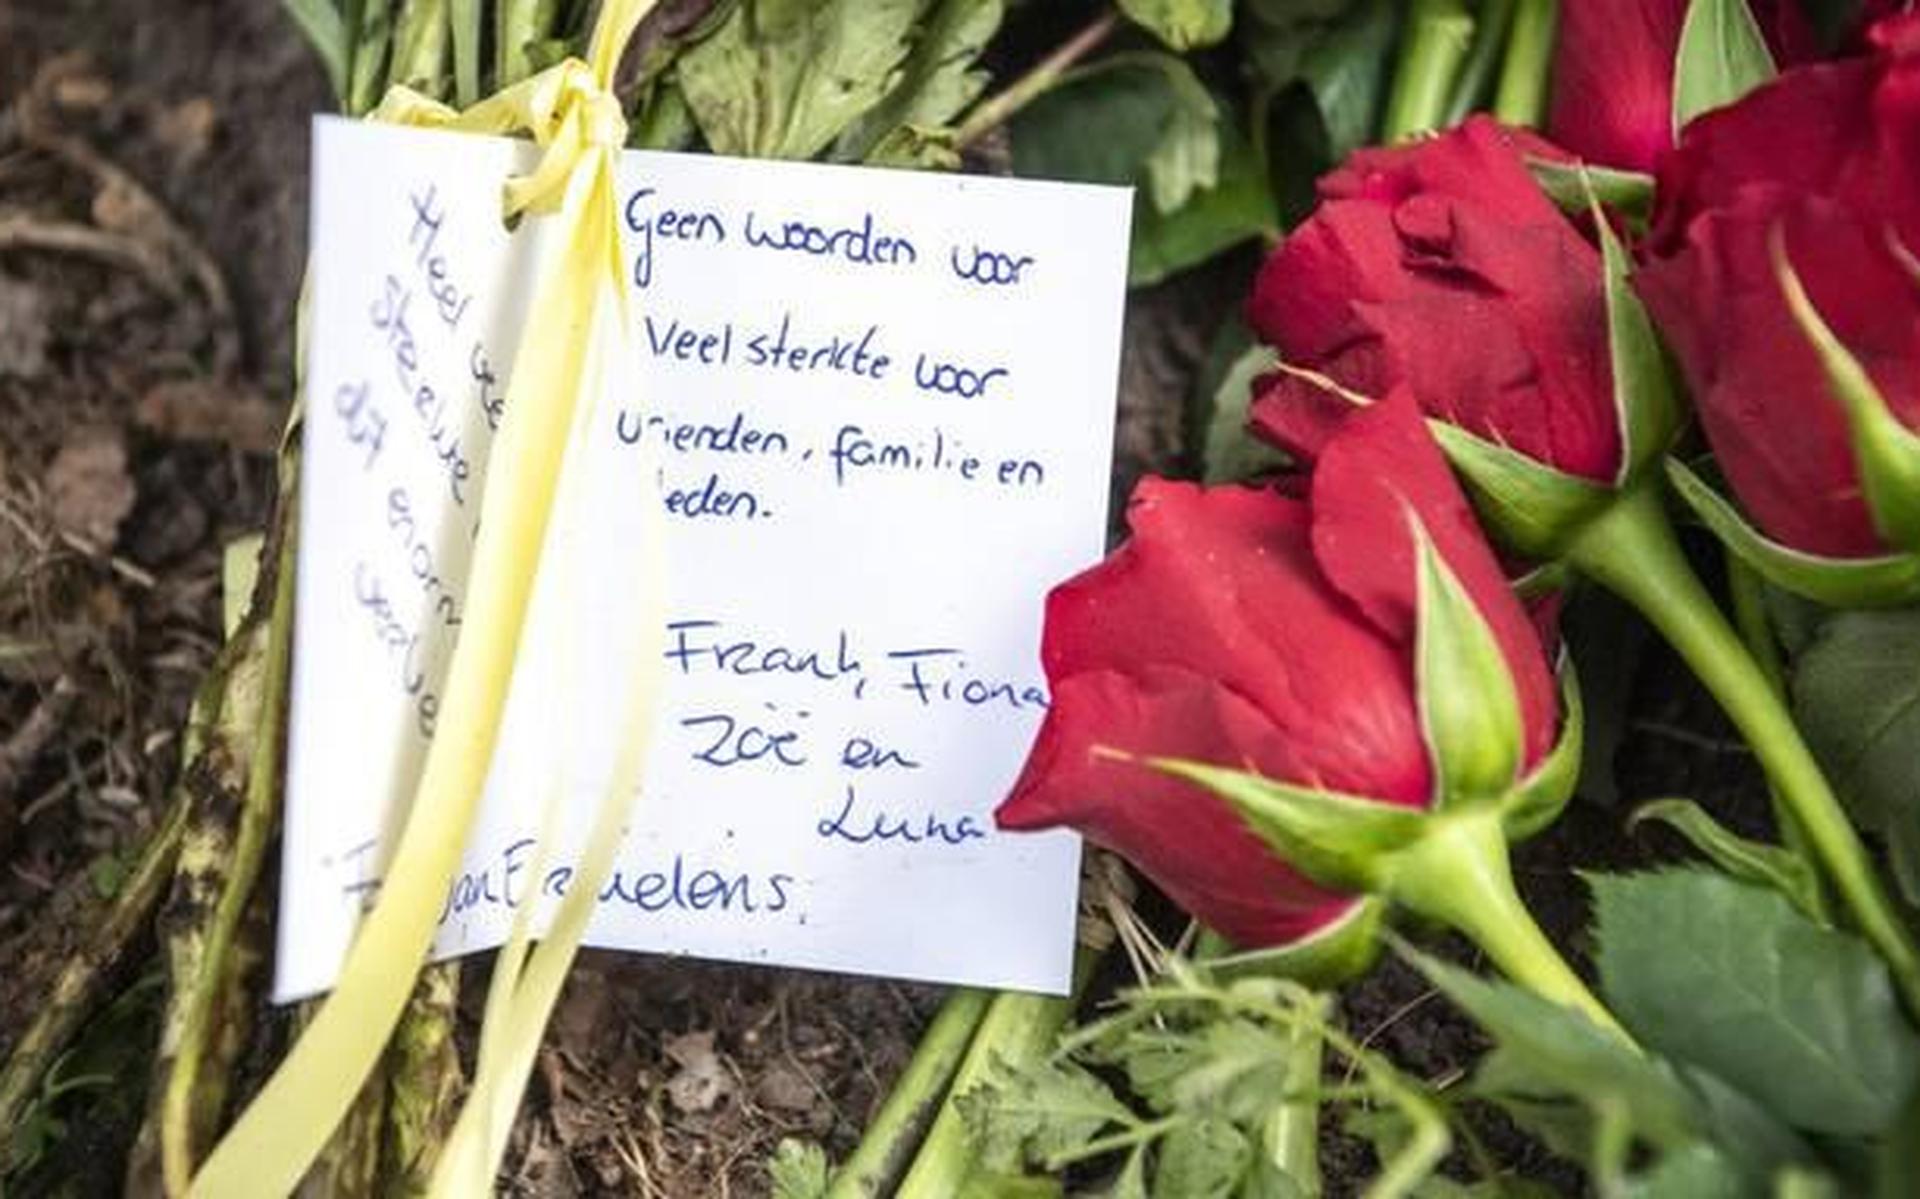 Heel
Sterkte
dit enorm
verlies
Geen woorden voor
Veel sterkte voor
vrienden, familie en
leden.
Frank, Fiona
Zoë en
Luna